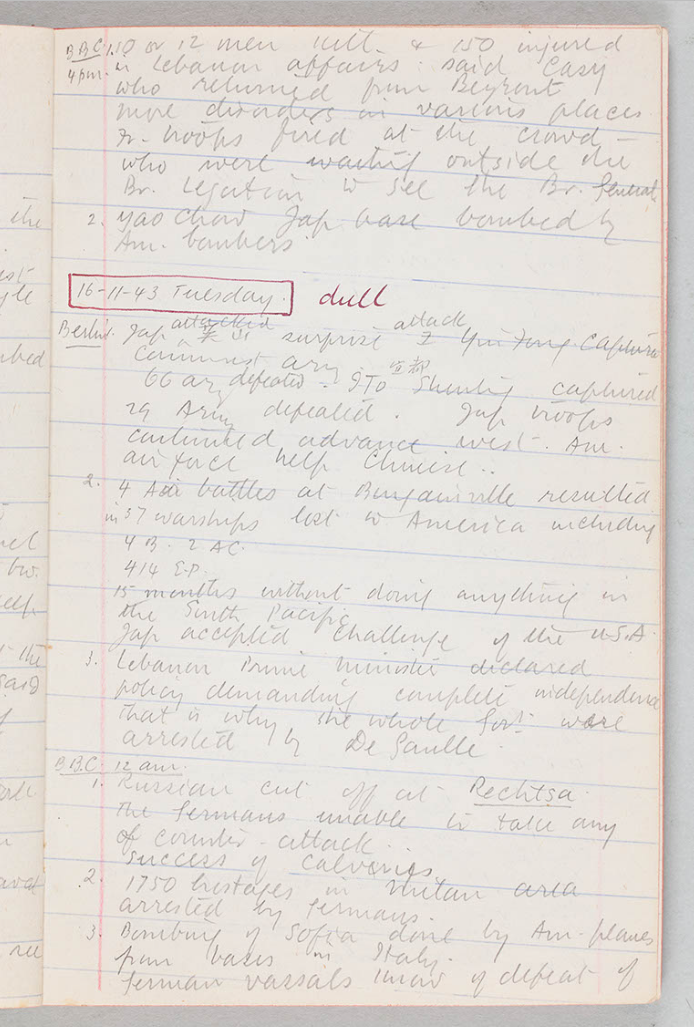 BBC 1. 10 or 12 men kill. & 150 injured
4 pm. in Lebanon affairs: said Casy
who returned from Beyrout
more disorders in various places
Fr. troops fired at the crowd
who were waiting outside the
Br. Legation to see the Br. General
2. Yao Chow Jap base bombed by
Am. bombers.
16-11-43 Tuesday. dull
Berlin. Jap attacked surprise attack captured
Communist army.
66 army defeated. 宜都 captured
29 Army defeated. Jap troops
continued advance west. Am.
air force help Chinese..
2. 4 Air battles at Bougainville resulted
in 37 warships lost to America including
4 B. 2 AC.
414 E.P.
15 months without doing anything in
the South Pacific
Jap accepted challenge of the U.S.A.
3. Lebanon Prime Minister declared
policy demanding complete independence
that is why the whole Govt. were
arrested by De Gaulle.
BBC 12 am.
1. Russian cut off at Rechtsa
the Germans unable to take any
of counter-attack
success of calveries
2. 1750 hostages in Milan area
arrested by Germans.
3. Bombing of Sofia done by Am. planes
from bases in Italy.
German vassals know of defeat of
the